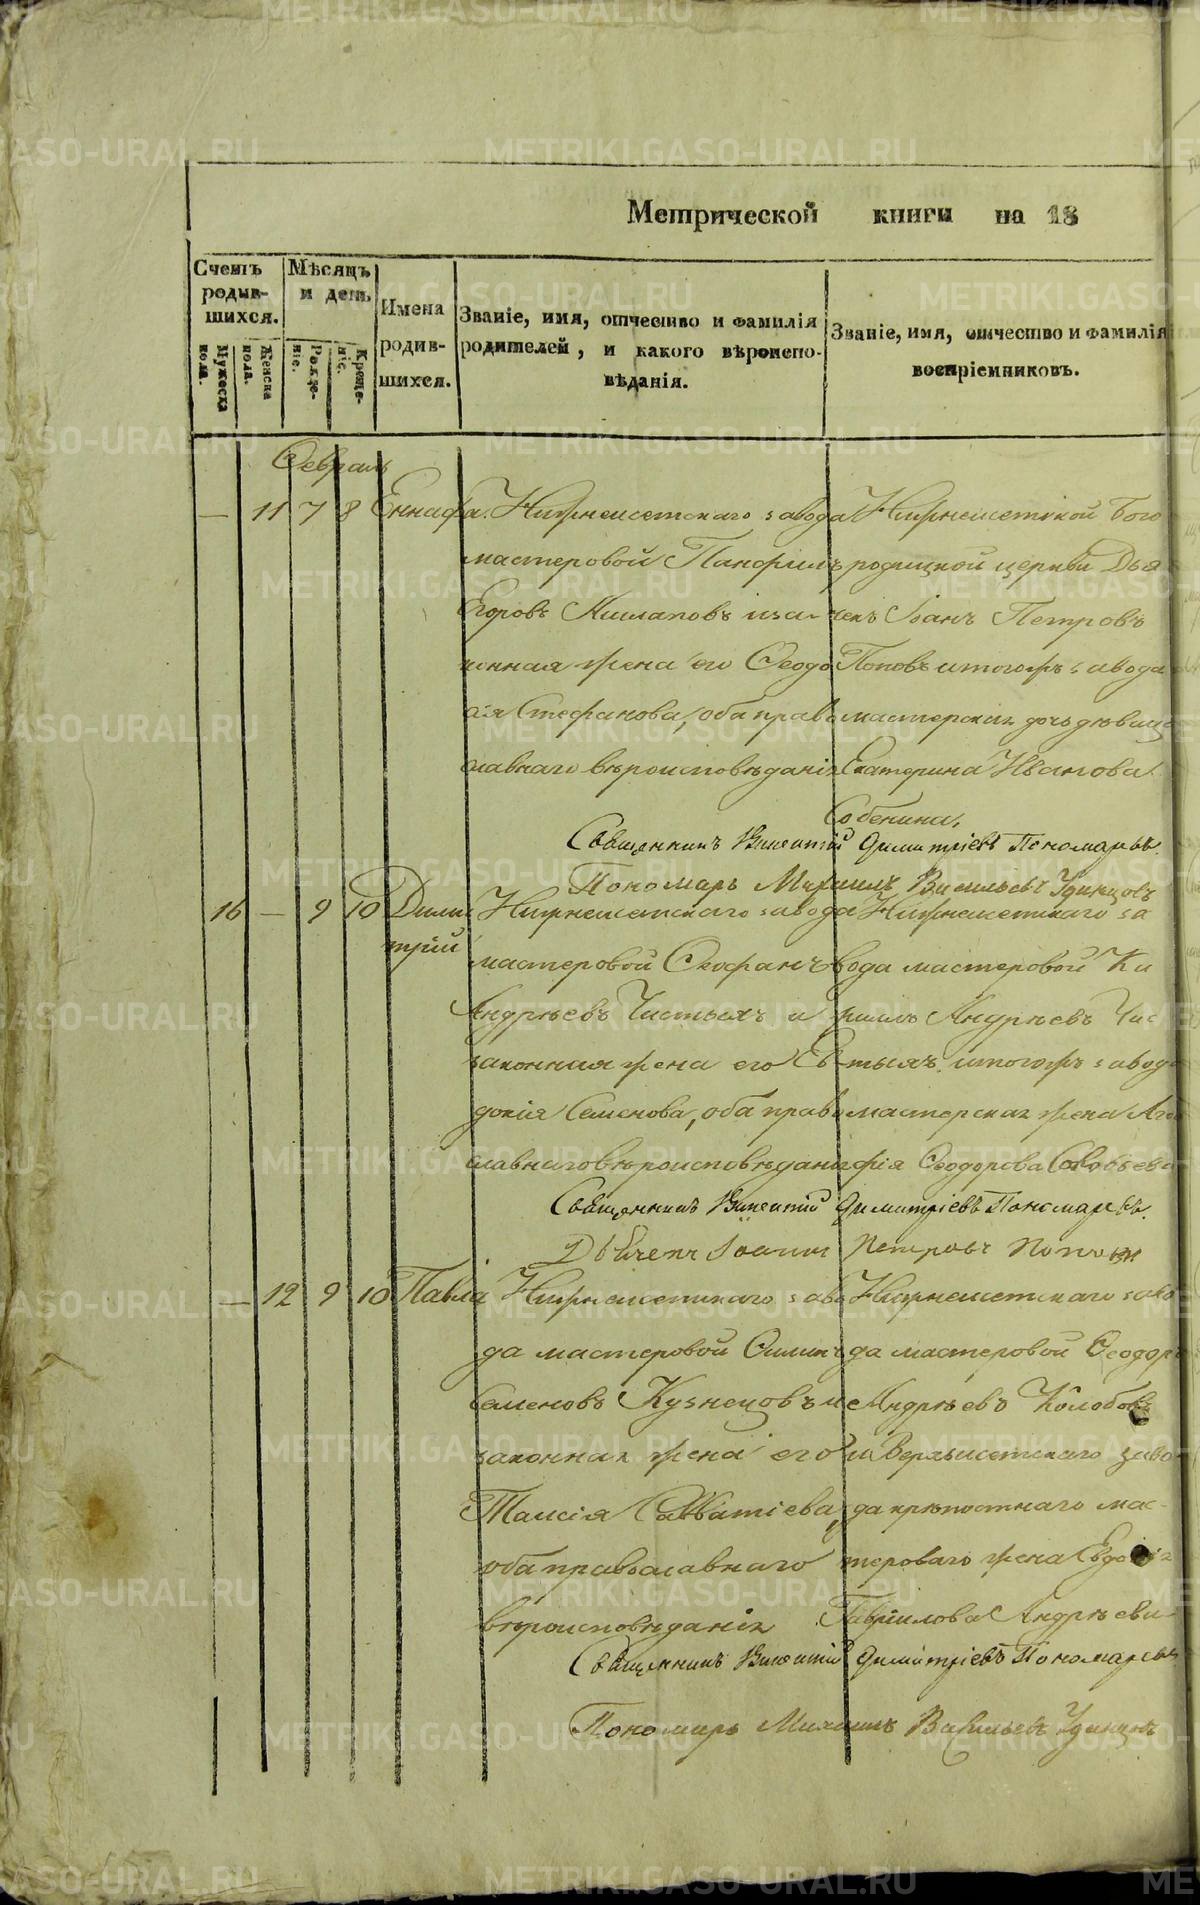 Метрической книги на 18
Счетъ родившихся.
Мужеска пола.
Женска пола.
Мѣсяцъ и день.
Рожденіе.
Крещеніе.
Имена родившихся.
Званіе, имя, отчество и фамилія родителей, и какого вѣроисповѣданія.
Званіе, имя, отчество и фамилія воспріемниковъ.
Февраль
— 11 7 8
Еннафа.
Нижнеисетскаго завода
мастеровой Панфилъ
Егоровъ и за
конная жена его Феодо
сія Стефанова, оба право
славнаго вѣроисповѣданія
Нижнеисетской Бого
родицкой церкви Дья
чекъ Іоанъ Петровъ
Поповъ и тогожъ завода
мастерская дочь дѣвица
Екатерина Иванова
Собенина.
Священникъ Викентій Димитріевъ Пономаревъ.
Пономарь Михаилъ Васильевъ Удинцовъ
16 — 9 10
Дими
трій
Нижнеисетскаго завода
мастеровой Феофанъ
Андрѣевъ Чистяхъ и
законная жена его Ев
докія Семенова, оба право
славнаго вѣроисповѣданія
Нижнеисетскаго за
вода мастеровой Ки
рилъ Андрѣевъ Чис
тыхъ и тогожъ завода
мастерская жена Ага
фія Феодорова Соловьева
Священникъ Викентій Димитріевъ Пономаревъ.
Дьячекъ Іоаннъ Петровъ Поповъ
— 12 9 10
Павла
Нижнеисетскаго заво
да мастеровой Филипъ
Семеновъ Кузнецовъ и
законная жена его
Таисія Савватіева,
оба православнаго
вѣроисповѣданія
Нижнеисетскаго заво
да мастеровой Феодоръ
Андрѣевъ Колобовъ
и Верхъисетскаго заво
да крѣпостнаго мас-
тероваго жена Евдокія
Гавриилова Андрѣева
Священникъ Викентій Димитріевъ Пономаревъ
Пономарь Михаилъ Васильевъ Удинцовъ
METRIKI.GASO-URAL.RU